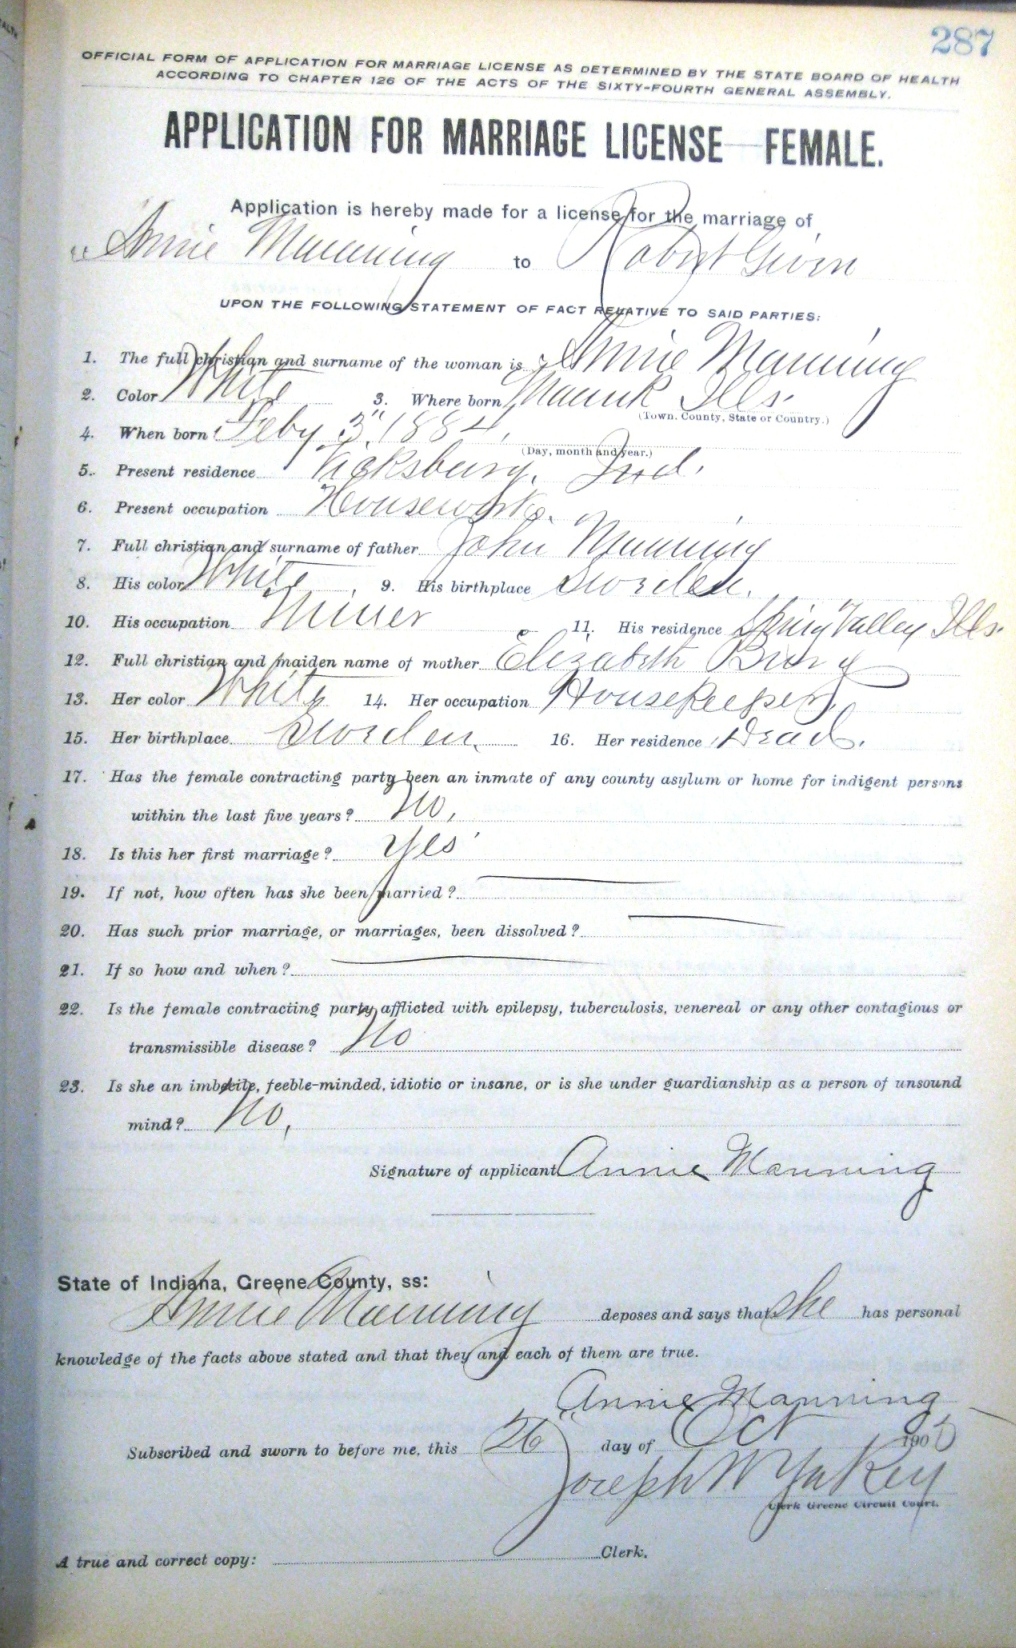 287
OFFICIAL FORM OF APPLICATION FOR MARRIAGE LICENSE AS DETERMINED BY THE STATE BOARD OF HEALTH
ACCORDING TO CHAPTER 126 OF THE ACTS OF THE SIXTY-FOURTH GENERAL ASSEMBLY.
APPLICATION FOR MARRIAGE LICENSE FEMALE.
Application is hereby made for a license for the marriage of
Annie Manning to Robert Given
UPON THE FOLLOWING STATEMENT OF FACT RELATIVE TO SAID PARTIES:
1. The full christian and surname of the woman is Annie Manning
2. Color White 3. Where born Ills.
(Town. County, State or Country.)
4. When born Feby 3" 1884.
(Day, month and year.)
5. Present residence Vicksburg, Ind.
6. Present occupation Housework.
7. Full christian and surname of father John Manning
8. His color White 9. His birthplace Sweden.
10. His occupation Miner 11. His residence Spring Valley Ills.
12. Full christian and maiden name of mother Elizabeth
13. Her color White 14. Her occupation Housekeeper
15. Her birthplace Sweden. 16. Her residence Dead.
17. Has the female contracting party been an inmate of any county asylum or home for indigent persons
within the last five years? No,
18. Is this her first marriage? Yes
19. If not, how often has she been married?
20. Has such prior marriage, or marriages, been dissolved?
21. If so how and when?
22. Is the female contracting party afflicted with epilepsy, tuberculosis, venereal or any other contagious or
transmissible disease? No
23. Is she an imbecile, feeble-minded, idiotic or insane, or is she under guardianship as a person of unsound
mind? No,
Signature of applicant Annie Manning
State of Indiana, Greene County, ss:
Annie Manning deposes and says that she has personal
knowledge of the facts above stated and that they and each of them are true.
Annie Manning
Subscribed and sworn to before me, this 26" day of Oct 190
Joseph W Yakey
Clerk Greene Circuit Court.
A true and correct copy: Clerk.